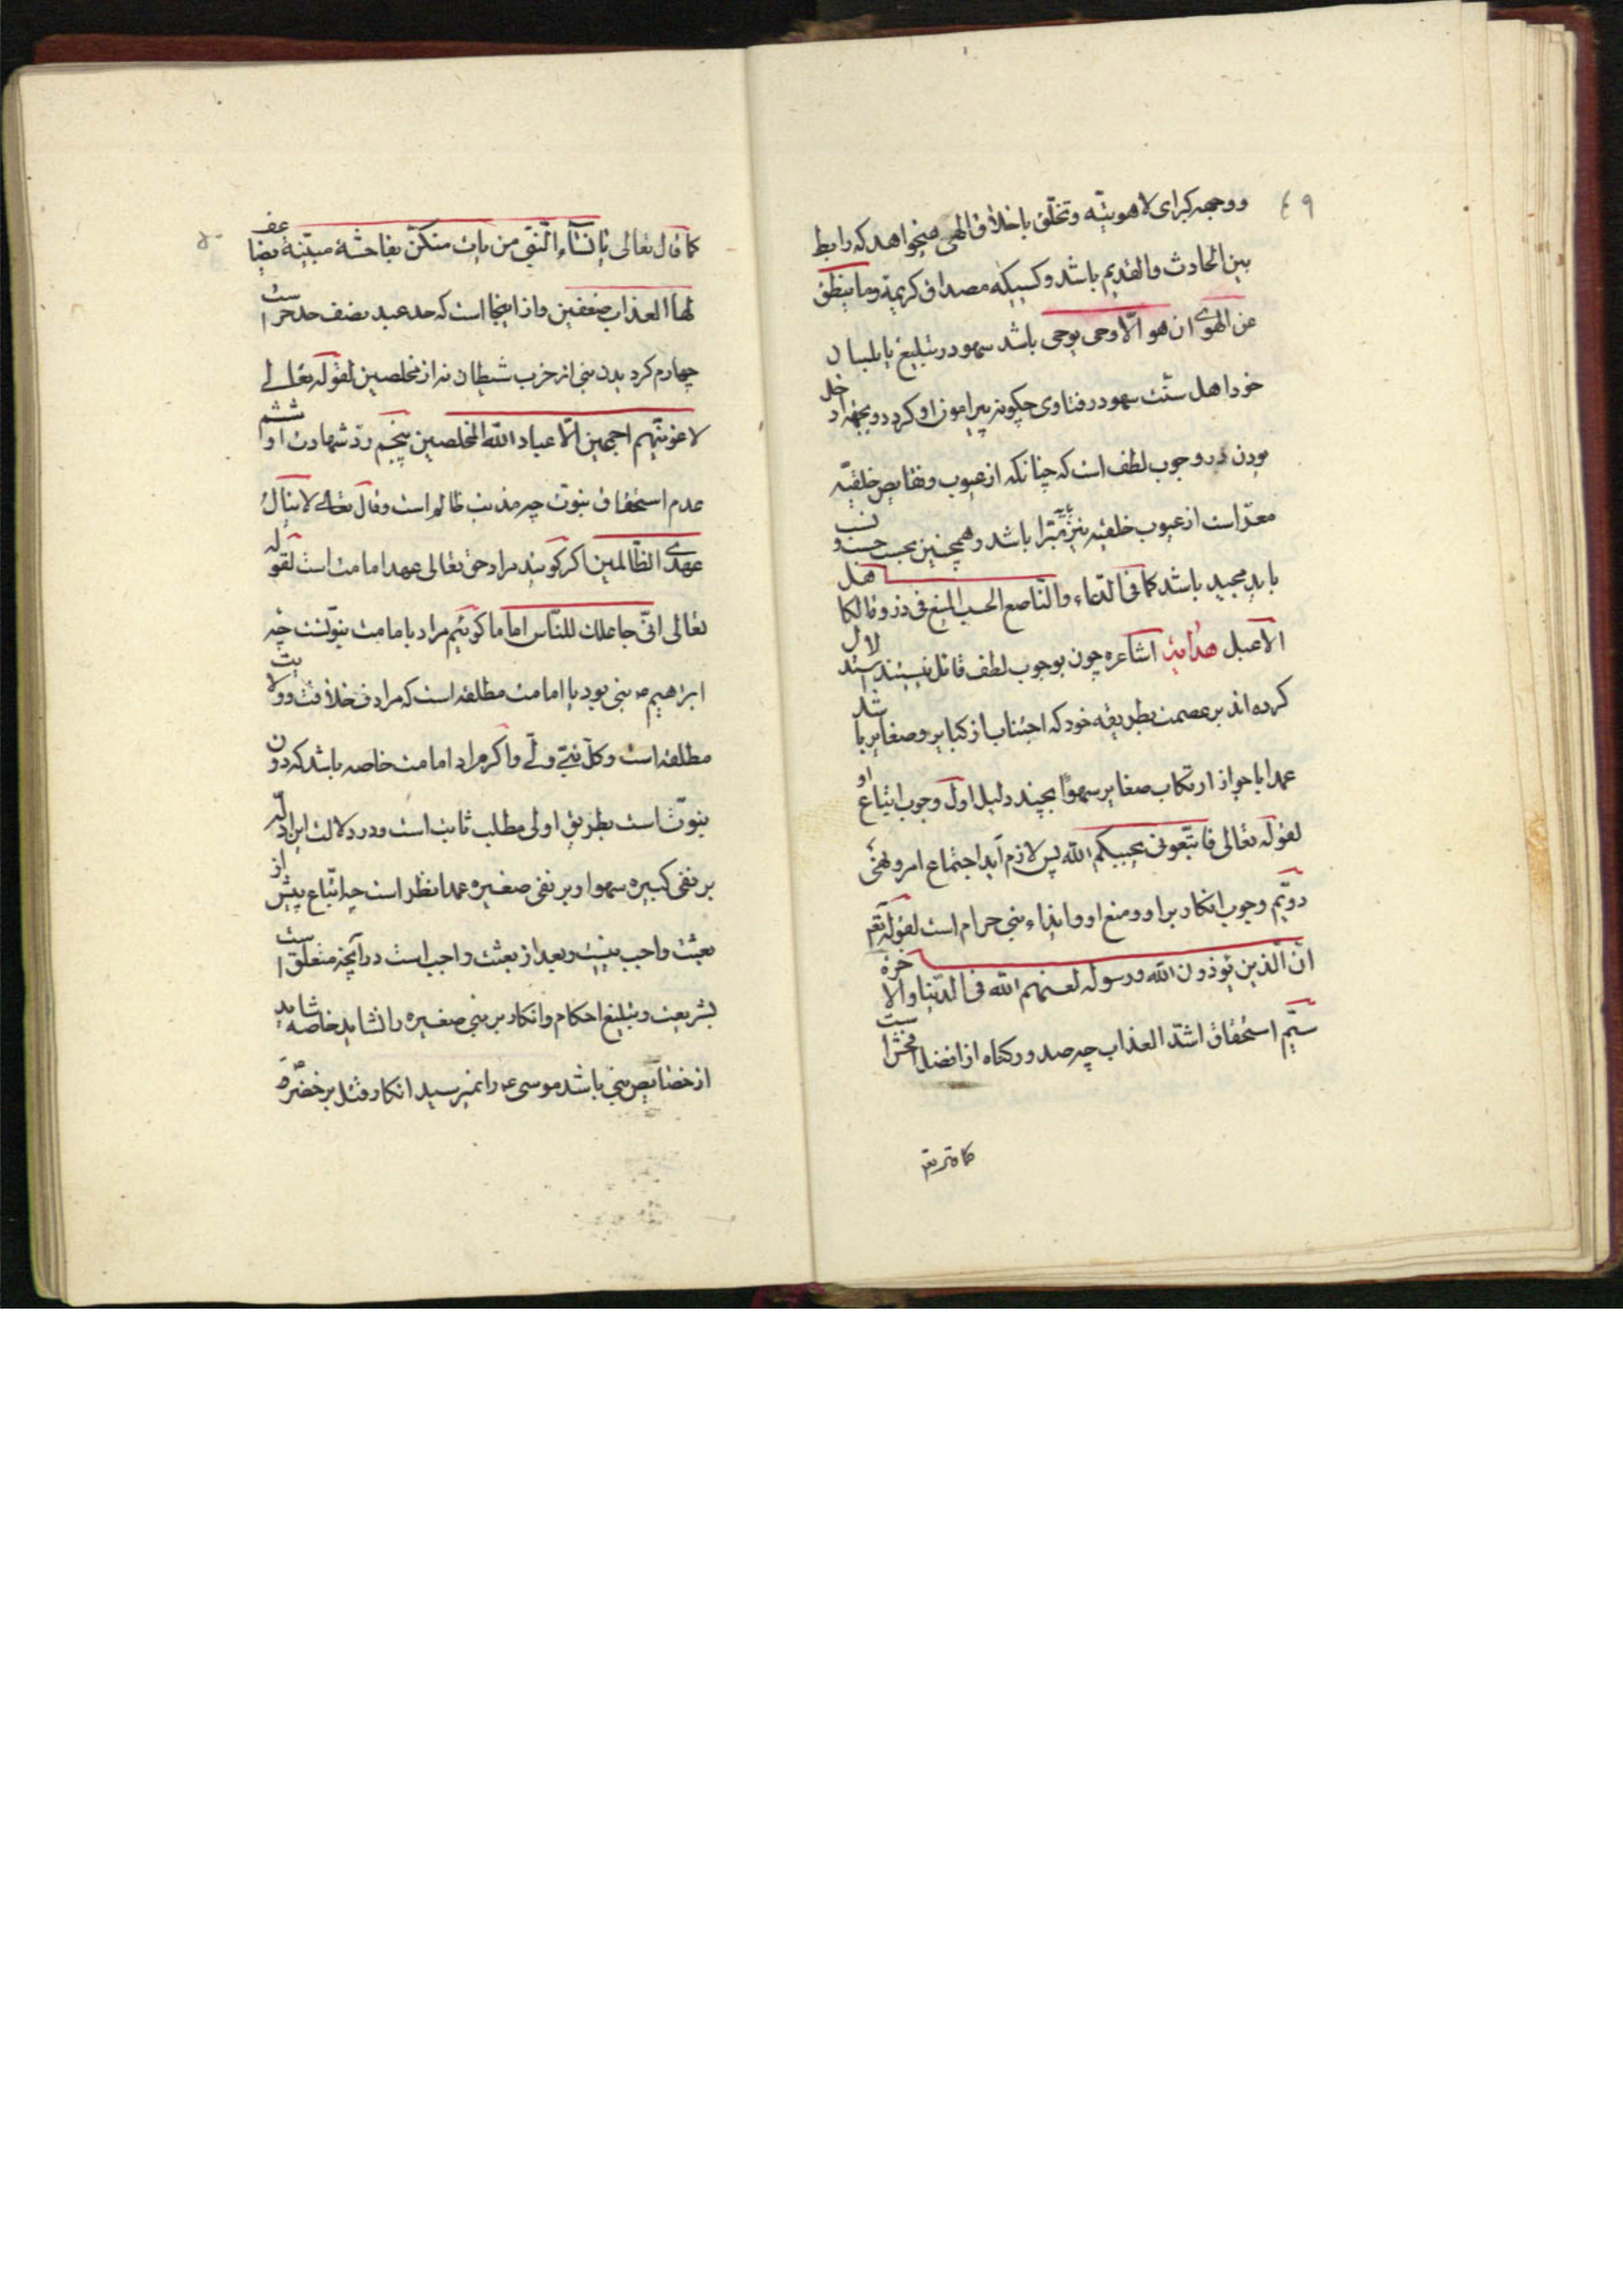 ۴۹
و وجهه کبرای لاهوتیه و تخلق باخلاق الهی میخواهد که رابط
بین الحادث والقدیم باشد و کسیکه مصداق کریمة وما ینطق
عن الهوی ان هو الّا وحی یوحی باشد سهو در تبلیغ یا بلسان
خود اهل سنّت سهو در فتاوی چگونه پیرامون او گردد و بجهة داخل
بودن در وجوب لطف است که چنانکه از عیوب و نقایص خلقیّه
معرّا است از عیوب خلقیه نیز مبرّا باشد و همچنین بحسب حسب و نسب
باید مجید باشد کما فی الدّعاء والنّاصع الحسب فی ذروة الکاهل
الاعبل هدایة اشاعره چون بوجوب لطف قائل نیستند استدلال
کرده‌اند بر عصمت بطریقه خود که اجتناب از کبایر و صغایر باشد
عمدا با جواز ارتکاب صغایر سهوًا بچند دلیل اول وجوب اتباع او
لقوله تعالی فاتّبعونی یحببکم الله پس لازم آید اجتماع امر و نهی
دویّم وجوب انکار بر او و منع او و ایذاء نبی حرام است لقوله تعم
انّ الّذین یؤذون الله ورسوله لعنهم الله فی الدّنیا والاخرة
سیّم استحقاق اشدّ العذاب چه صدور گناه از افضل افحش است
کما قال تعم
۵۰
کما قال تعالی یا نساء النّبی من یأت منکنّ بفاحشة مبیّنة یضاعف
لها العذاب ضعفین و از اینجا است که حد عبد نصف حد حر است
چهارم کردیدن نبی از حزب شیطان نه از مخلصین لقوله تعالی
لاغوینّهم اجمعین الّا عباد الله المخلصین پنجم ردّ شهادت او ششم
عدم استحقاق نبوّت چه مذنب ظالم است وقال تعالی لا ینال
عهدی الظّالمین اگر گویند مراد حق تعالی عهد امامت است لقوله
تعالی انّی جاعلک للنّاس اماما گوئیم مراد یا بامامت نبوّتست چه
ابراهیم ع نبی بود یا امامت مطلقه است که مرادف خلافت و ولایت
مطلقه است وکلّ نبیّ ولیّ و اگر مراد امامت خاصه باشد که دون
نبوّت است بطریق اولی مطلب ثابت است و در دلالت این ادلّه
بر نفی کبیره سهوا و بر نفی صغیره عمدا نظر است چه اتّباع پیش از
بعثت واجب نیست و بعد از بعثت واجب است در آنچه متعلق است
بشریعت و تبلیغ احکام و انکار بر نبی صغیره را نشاید خاصه شاید
از خصایص نبی باشد موسی ع را نمیرسید انکار قتل بر خضر